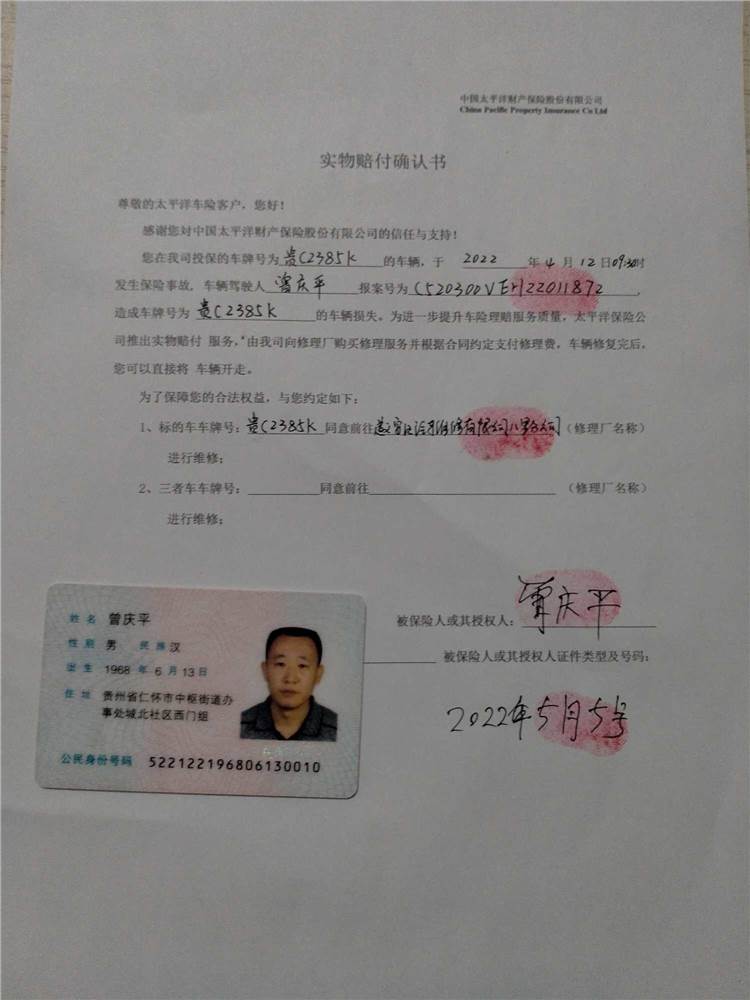 中国太平洋财产保险股份有限公司
China Pacific Property Insurance Co Ltd
实物赔付确认书
尊敬的太平洋车险客户，您好！
感谢您对中国太平洋财产保险股份有限公司的信任与支持！
您在我司投保的车牌号为贵C2385K的车辆，于 2022 年 4 月 12 日09:30时
发生保险事故，车辆驾驶人 曾庆平 报案号为
造成车牌号为 贵C2385K 的车辆损失。为进一步提升车险理赔服务质量，太平洋保险公
司推出实物赔付 服务，由我司向修理厂购买修理服务并根据合同约定支付修理费，车辆修复完后，
您可以直接将 车辆开走。
为了保障您的合法权益，与您约定如下：
1、标的车车牌号：贵C2385K 同意前往（修理厂名称）
进行维修；
2、三者车车牌号：同意前往（修理厂名称）
进行维修；
被保险人或其授权人：曾庆平
被保险人或其授权人证件类型及号码：
2022年5月5号
姓名 曾庆平
性别 男 民族 汉
出生 1968 年 6 月 13 日
住址 贵州省仁怀市中枢街道办
事处城北社区西门组
公民身份号码 522122196806130010